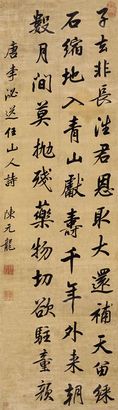 子玄非長往君恩取大還補天留綵
石縮地入青山獻壽千年外來朝
數月間莫抛殘藥物切欲駐童顏
唐李泌送任山人詩
陳元龍